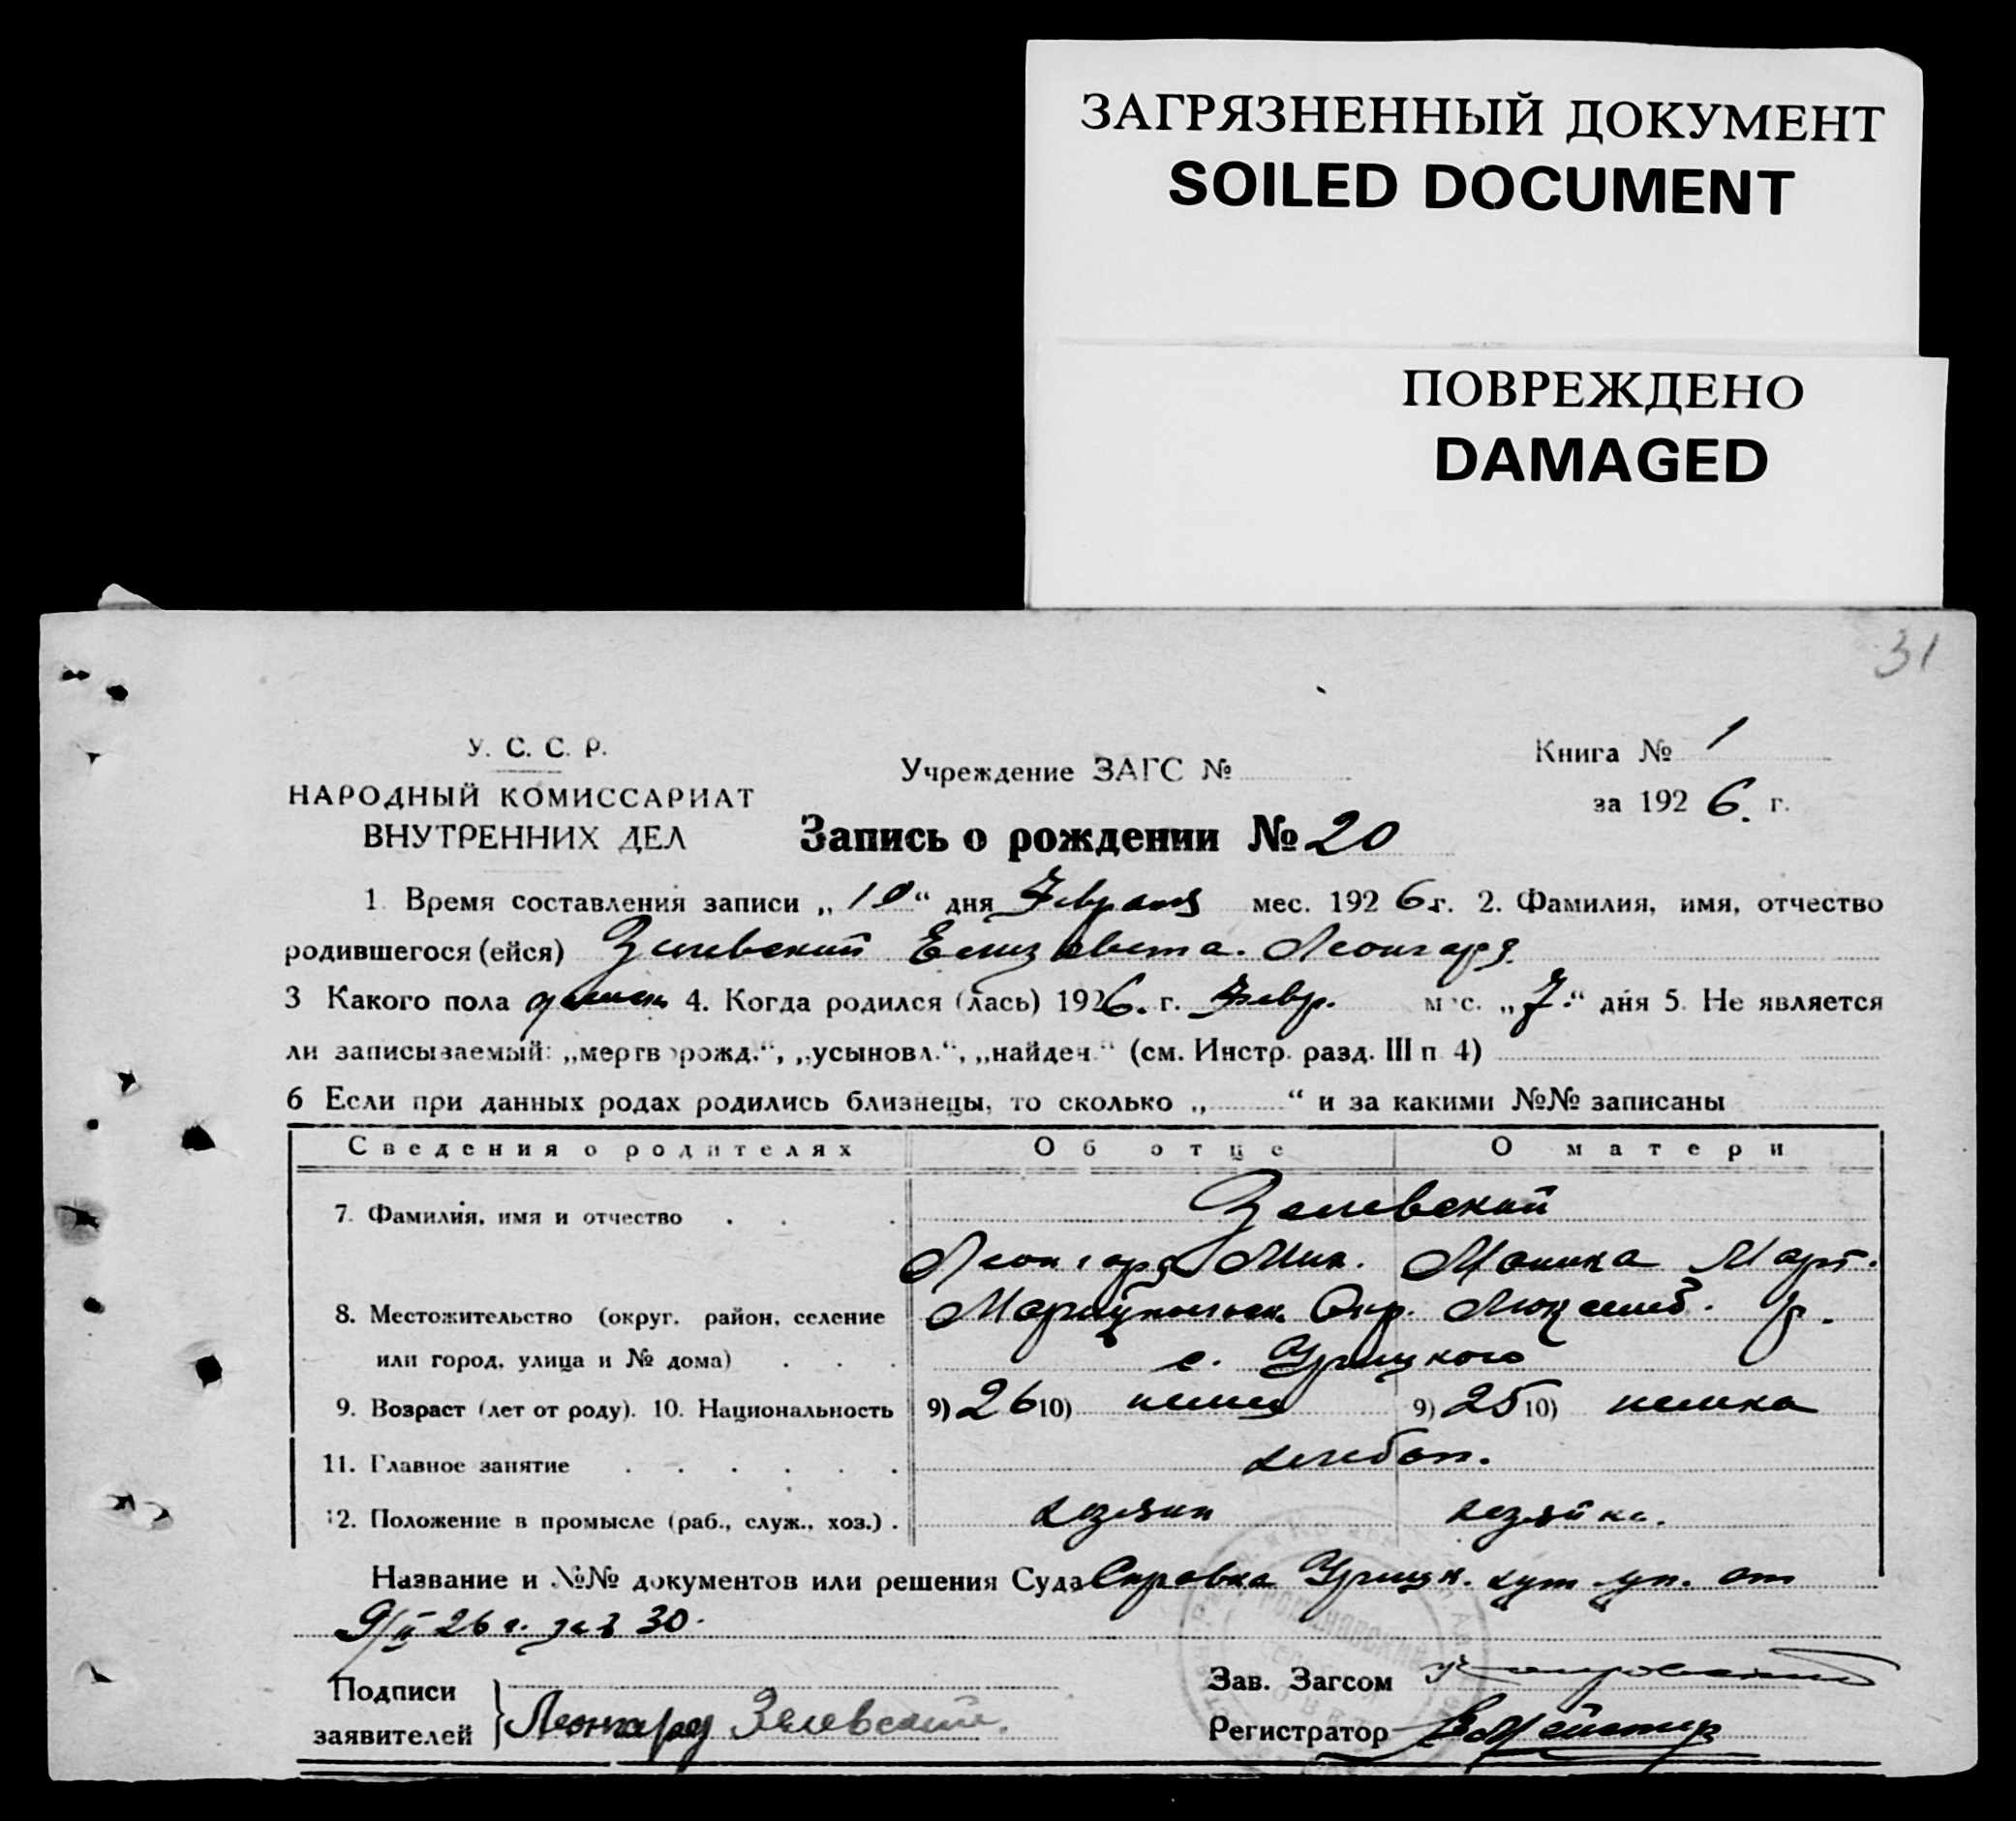 ЗАГРЯЗНЕННЫЙ ДОКУМЕНТ
SOILED DOCUMENT
ПОВРЕЖДЕНО
DAMAGED
31
У. С. С. Р.
НАРОДНЫЙ КОМИССАРИАТ
ВНУТРЕННИХ ДЕЛ
Учреждение ЗАГС №
Книга № 1
за 1926. г.
Запись о рождении № 20
1. Время составления записи „10“ дня Февраля мес. 1926 г. 2. Фамилия, имя, отчество
родившегося (ейся) Зелевский Елизавета. Леонгард.
3 Какого пола женск 4. Когда родился (лась) 1926. г. Февр. мес. „7.“ дня 5. Не является
ли записываемый: „мертворожд.“, „усыновл.“, „найден.“ (см. Инстр. разд. III п. 4)
6 Если при данных родах родились близнецы, то сколько „ “ и за какими №№ записаны
Сведения о родителях Об отце О матери
7. Фамилия, имя и отчество . . . Зелевский
Леонгард Мих. Моника Март.
8. Местожительство (округ, район, селение Мариупольск. Окр. Люксемб. р.
или город, улица и № дома) . . . с. Урицкого
9. Возраст (лет от роду). 10. Национальность 9) 26 10) немец 9) 25 10) немка
11. Главное занятие . . . . . . хлебоп.
12. Положение в промысле (раб., служ., хоз.) . хозяин хозяйка.
Название и №№ документов или решения Суда Справка Урицк. хут. уп. от
9/II 26 г. за № 30.
Подписи
заявителей } Леонгард Зелевский.
Зав. Загсом
Регистратор